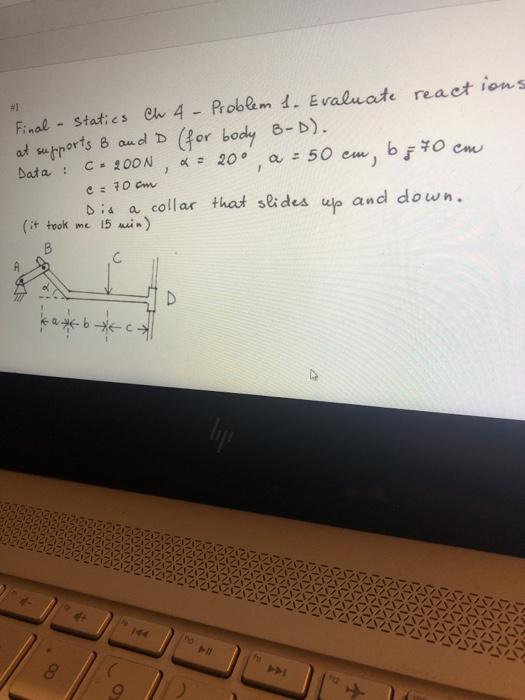 #1
Final - Statics Ch 4 - Problem 1. Evaluate reactions
at supports B and D (for body B-D).
Data : C = 200N , α = 20° , a = 50 cm, b = 70 cm
c = 70 cm
D is a collar that slides up and down.
(it took me 15 min)
B
C
A
α
D
a b c
hp
f9 f10 f11 f12
8 ( 9 )